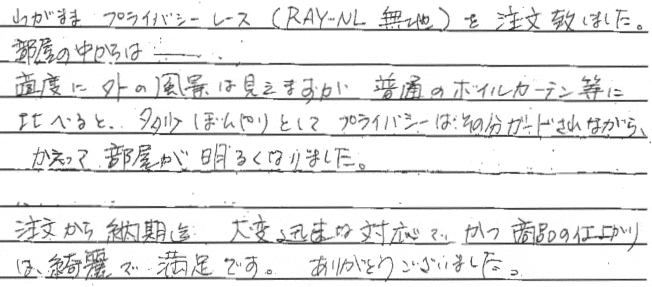 わがまま プライバシーレース（RAY-NL 無地）を 注文致しました。
部屋の中からは ――
適度に 外の風景は見えますが 普通のボイルカーテン等に
比べると、多少 ぼんやりとして プライバシーは その分ガードされながら、
かえって 部屋が 明るくなりました。
注文から 納期迄 大変迅速な対応で かつ 商品の仕上がり
は、綺麗で 満足です。 ありがとうございました。